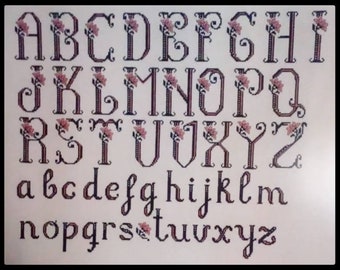 ABCDEFGHI
JKLMNOPQ
RSTUVXYZ
abcdefghijklm
nopqrstuvxyz